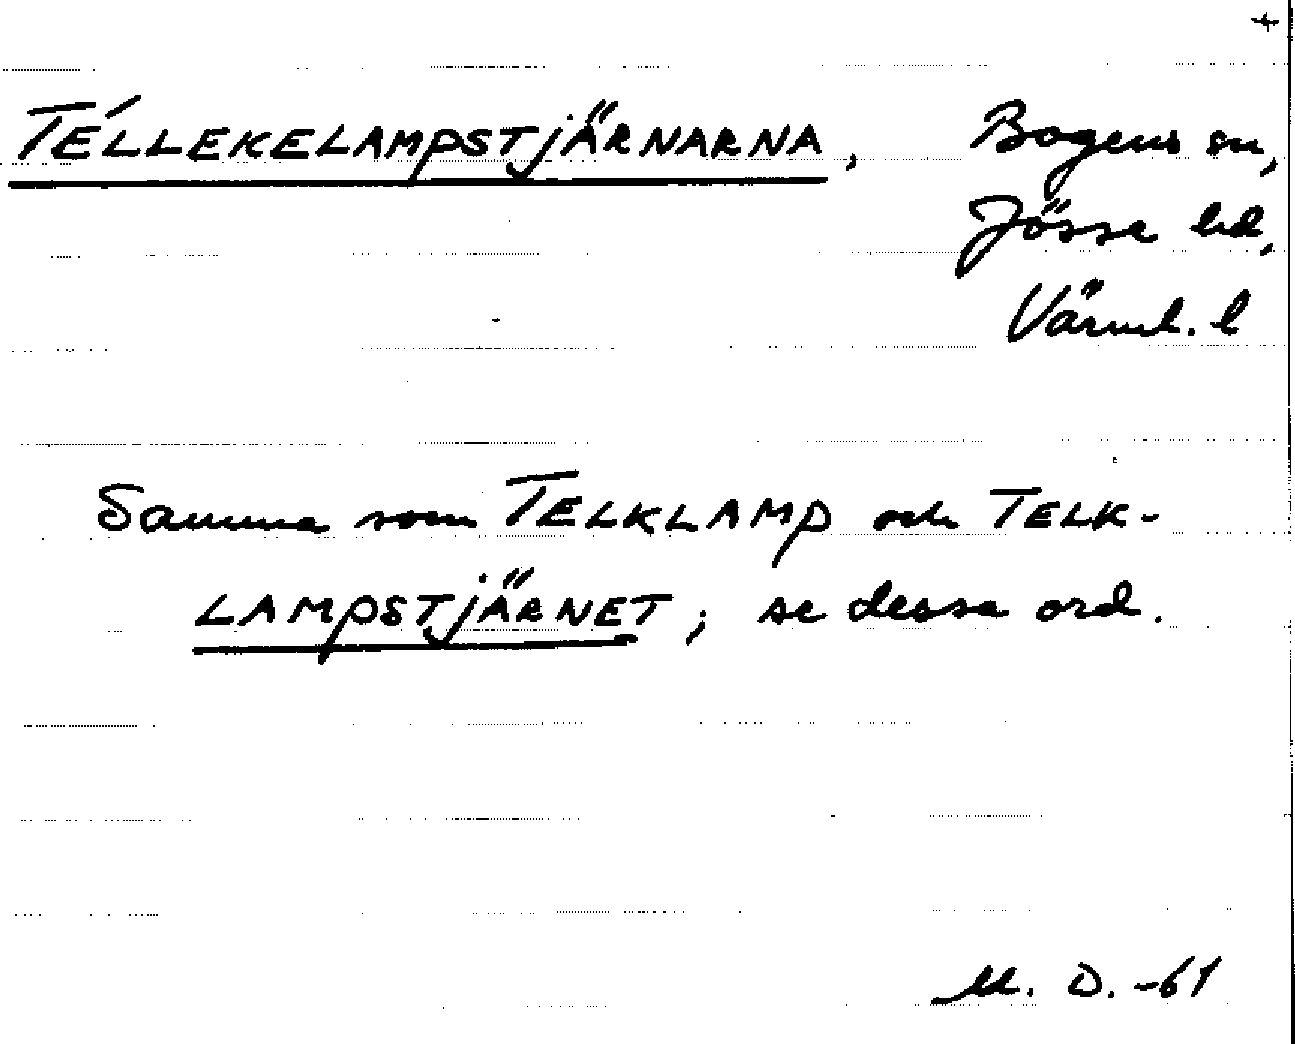 TÉLLEKELAMPSTJÄRNARNA, Bogens sn,
Jösse hd,
Värml. l
Samma som TELKLAMP och TELK-
LAMPSTJÄRNET; se dessa ord.
M. D. -61